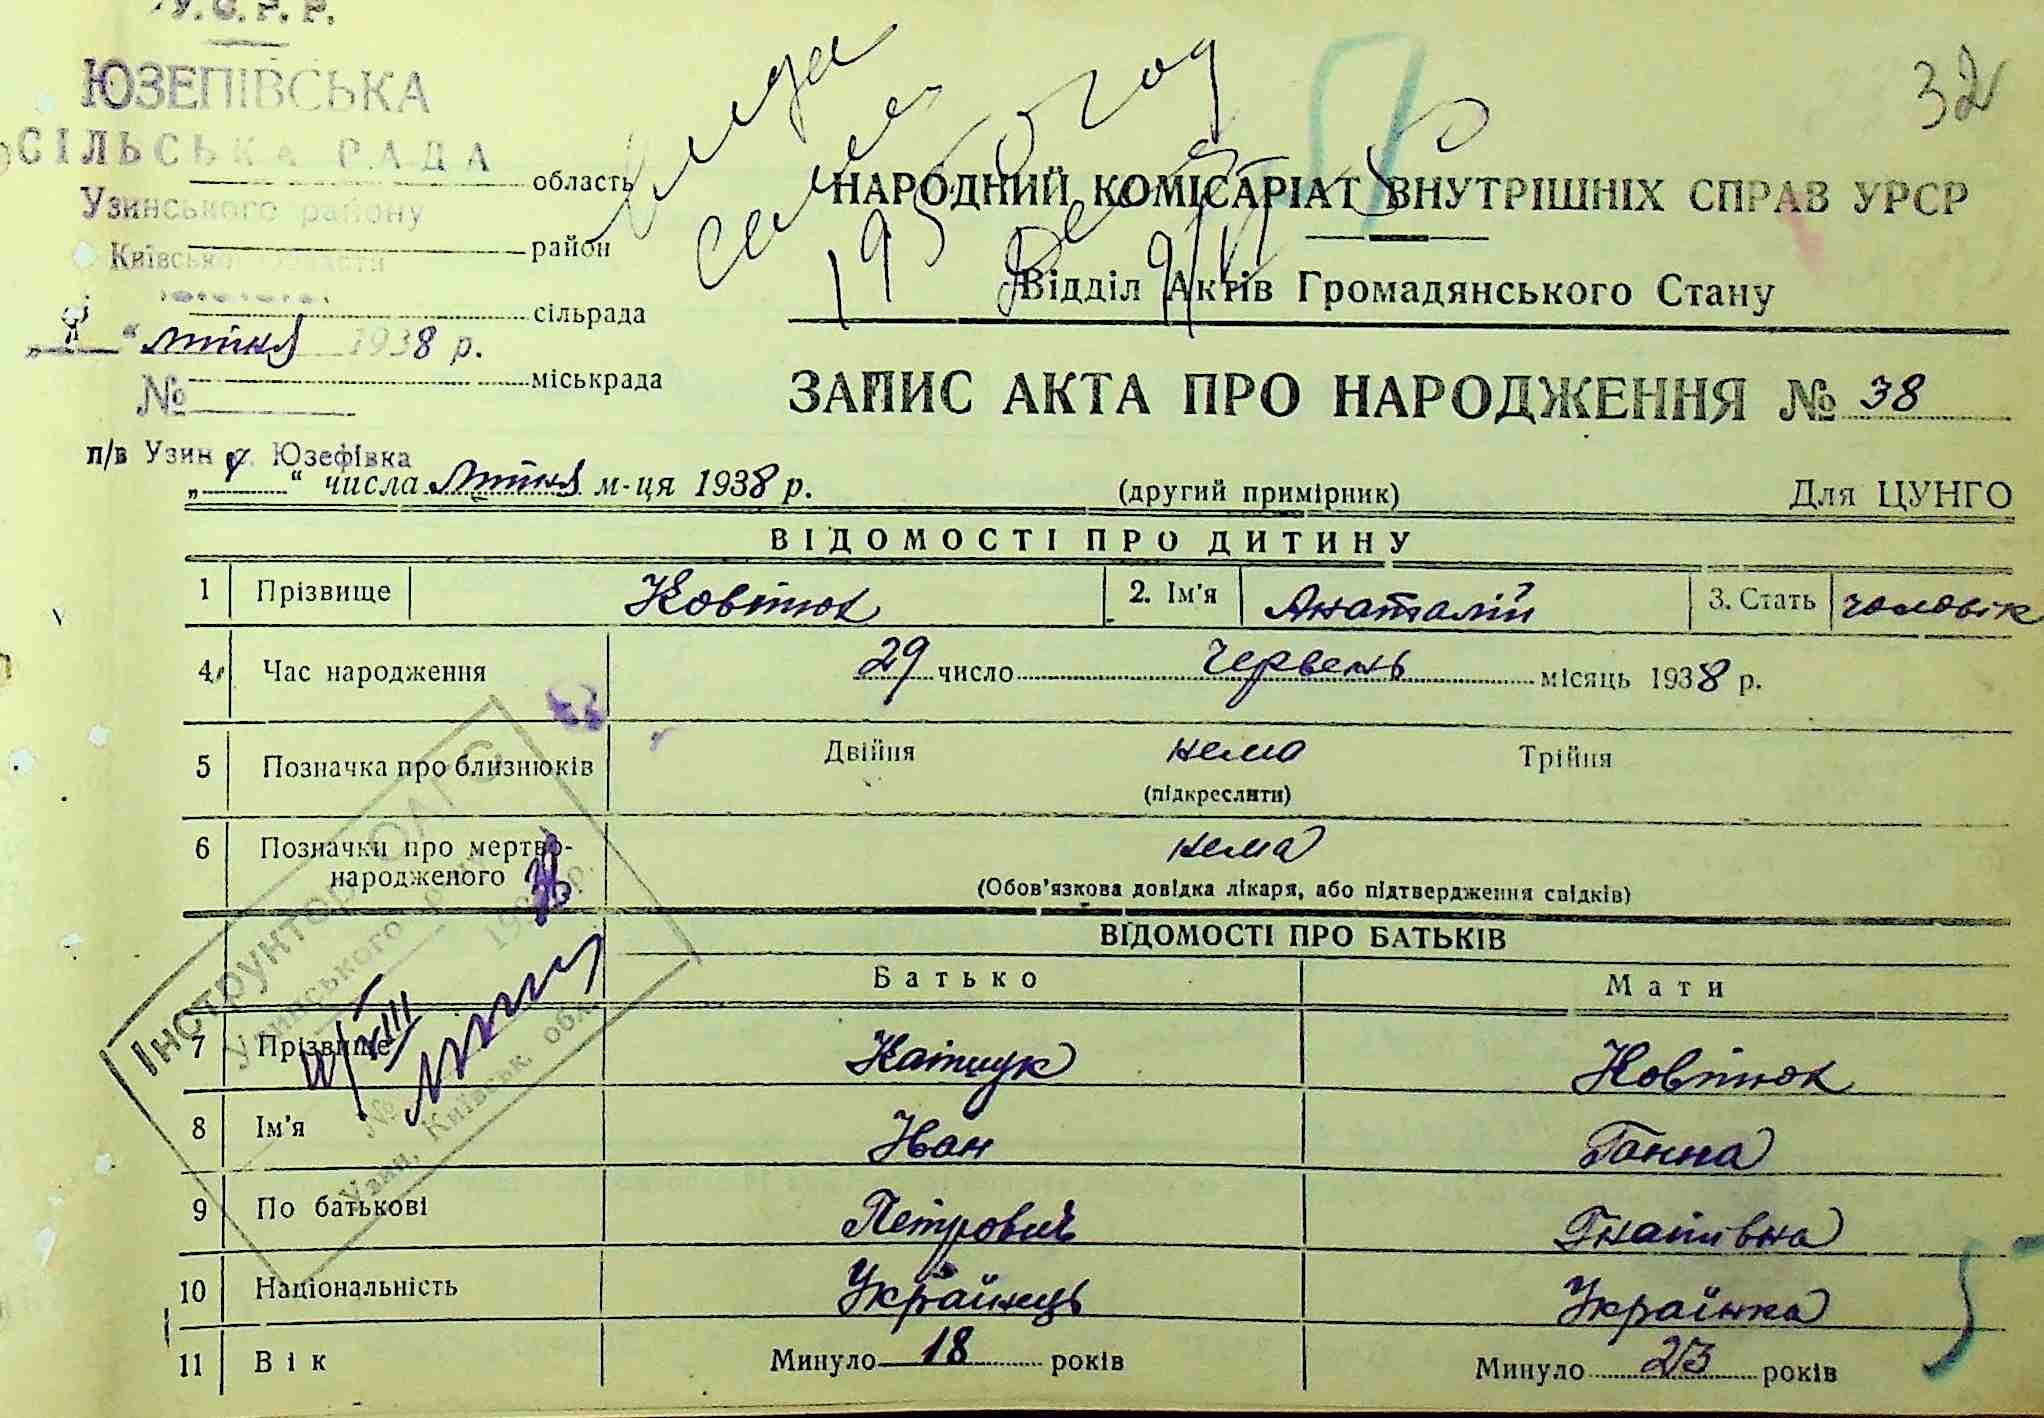 У.С.Р.Р.
ЮЗЕПІВСЬКА
СІЛЬСЬКА РАДА
Узинського району
Київської області
32
область
район
сільрада
міськрада
„ “ липня 1938 р.
№
п/в Узин с. Юзефівка
НАРОДНИЙ КОМІСАРІАТ ВНУТРІШНІХ СПРАВ УРСР
Відділ Актів Громадянського Стану
ЗАПИС АКТА ПРО НАРОДЖЕННЯ № 38
„ “ числа липня м-ця 1938 р. (другий примірник) Для ЦУНГО
ВІДОМОСТІ ПРО ДИТИНУ
1 Прізвище Ковтюк 2. Ім'я Анаталій 3. Стать чоловік
4 Час народження 29 число червень місяць 1938 р.
5 Позначка про близнюків Двійня нема Трійня
(підкреслити)
6 Позначки про мертво-
народженого нема
(Обов'язкова довідка лікаря, або підтвердження свідків)
ВІДОМОСТІ ПРО БАТЬКІВ
Батько Мати
7 Прізвище Ковтюк
8 Ім'я Іван Ганна
9 По батькові Петрович Гнатівна
10 Національність Українець Українка
11 Вік Минуло 18 років Минуло 23 років
Інструктор ОАГС
Узинського р.
193 р.
№
Узин, Київськ. обл.